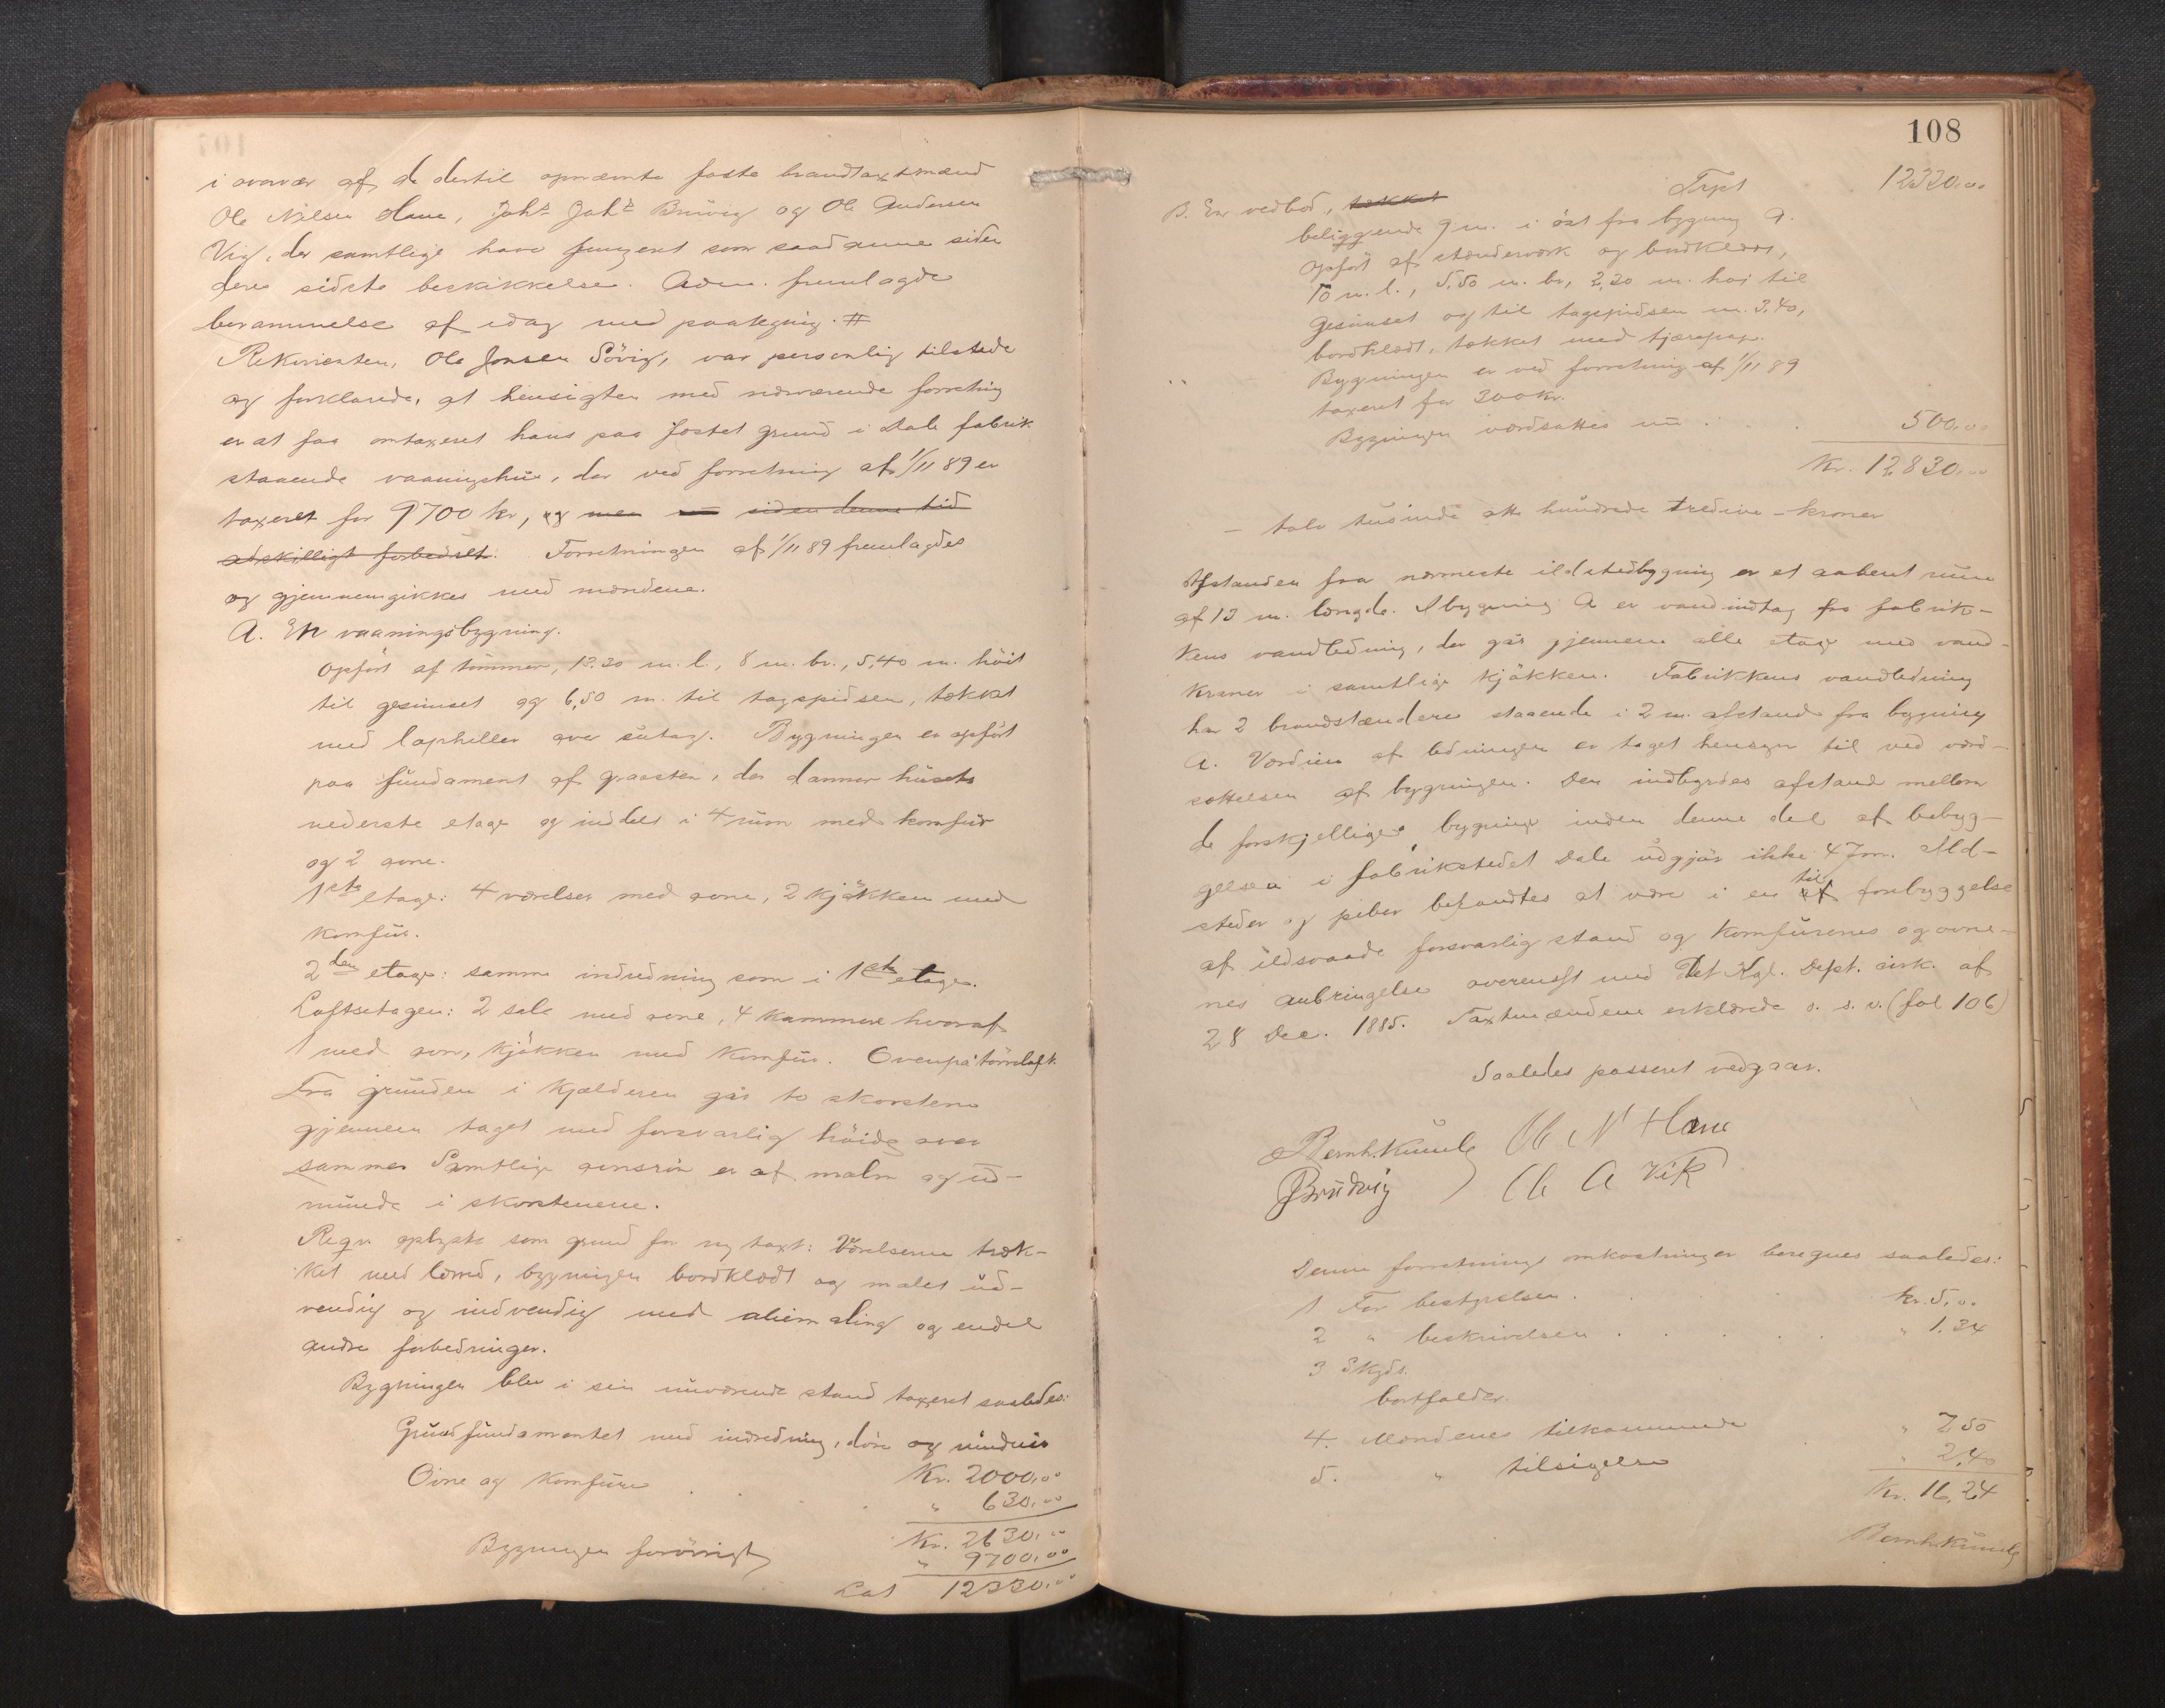 i overvær af de dertil opnævnte faste brandtaxtmænd
Ole Nilsen Hane, Johs Johs Brüvig og Ole Andersen
Vig, der samtlige have fungeret som saadanne siden
deres sidste beskikkelse. Adm. fremlagde
berammelse af idag med paategnig. #
Rekvirenten, Ole Jonsen Sövig, var personlig tilstede
og forklarede, at hensigten med nærværende forretnig
er at faa omtaxeret hans paa fæstet grund i Dale fabrik
staaende vaaningshus, der ved forretning af 1/11 89 er
taxeret for 9700 kr, og men siden denne tid
adskilligt forbedret. Forretningen af 1/11 89 fremlagdes
og gjennemgikkes med mændene.
A. En vaaningsbygning.
opfört af tömmer, 13.30 m. l., 8 m. br., 5,40 m. höit
til gesimset og 6,50 m. til tagspidsen, tækket
med laphiller over sutag. Bygningen er opfört
paa fundament af graasten, der danner husets
nederste etage og inddelt i 4 rum med komfur
og 2 ovne.
1ste etage: 4 værelser med ovne, 2 kjökken med
komfur.
2den etage: samme indredning som i 1ste etage.
Loftsetagen: 2 sale med ovne, 4 kammere hvoraf
1 med ovn, kjökken med komfur. Ovenpå törreloft.
Fra grunden i kjælderen går to skorstene
gjennem taget med forsvarlig höide over
samme. Samtlige ovnsrör er af malm og ud-
munde i skorstenene.
Reqv. oplyste som grund for ny taxt: Værelserne træk-
ket med lærred, bygningen bordklædt og malet ud-
vendig og indvendig med oliemaling og endel
andre forbedringer.
Bygningen blev i sin nuværende stand taxeret saaledes:
Grundfundamentet med indredning, döre og vinduer
Kr. 2000,00
Ovne og komfure . . . " 630,00
Kr. 2630,00
Bygningen forövrigt " 9700,00
Lat 12330,00
108
Trpt 12330,00
B. En vedbod, tækket
beliggende 9 m. i öst fra bygning A.
opfört af stænderværk og bordklædt,
10 m. l., 5,50 m. br, 2,30 m. höi til
gesimset og til tagspidsen m. 3,40,
bordklædt, tækket med tjærepap.
Bygningen er ved forretning af 1/11 89
taxeret for 300 kr.
Bygningen værdsattes nu . . . 500,00
Kr. 12830,00
– tolv tusinde otte hundrede tredive – kroner
Afstanden fra nærmeste ildstedbygning er et aabent rum
af 13 m. længde. I bygning A er vandindtag fra fabrik-
kens vandledning, der går gjennem alle etager med vand-
kraner i samtlige kjökken. Fabrikkens vandledning
har 2 brandstændere staaende i 2 m. afstand fra bygning
A. Værdien af ledningen er taget hensyn til ved værd-
sættelsen af bygningen. Den indbyrdes afstand mellem
de forskjellige bygninger inden denne del af bebyg-
gelsen i fabrikstedet Dale udgjör ikke 47 m. Ild-
steder og piber befandtes at være i en af til forebyggelse
af ildsvaade forsvarlig stand og komfurenes og ovne-
nes anbringelse overensst med Det Kgl. Dept. cirk. af
28 Dec. 1885. Taxtmændene erklærede o. s. v. (fol 106)
Saaledes passeret vedgaar.
Bernh. Kunde Ole N Hane
JBrüdvig Ole A Vik
Denne forretnings omkostninger beregnes saaledes:
1 For bestyrelsen . . . kr. 5,00
2 " beskrivelsen . . . . . " 1.34
3 Skyds.
bortfalder.
4. Mændenes tilkommende . " 7,50
5. " tilsigelse " 2,40
Kr. 16,24
Bernh. Kunde